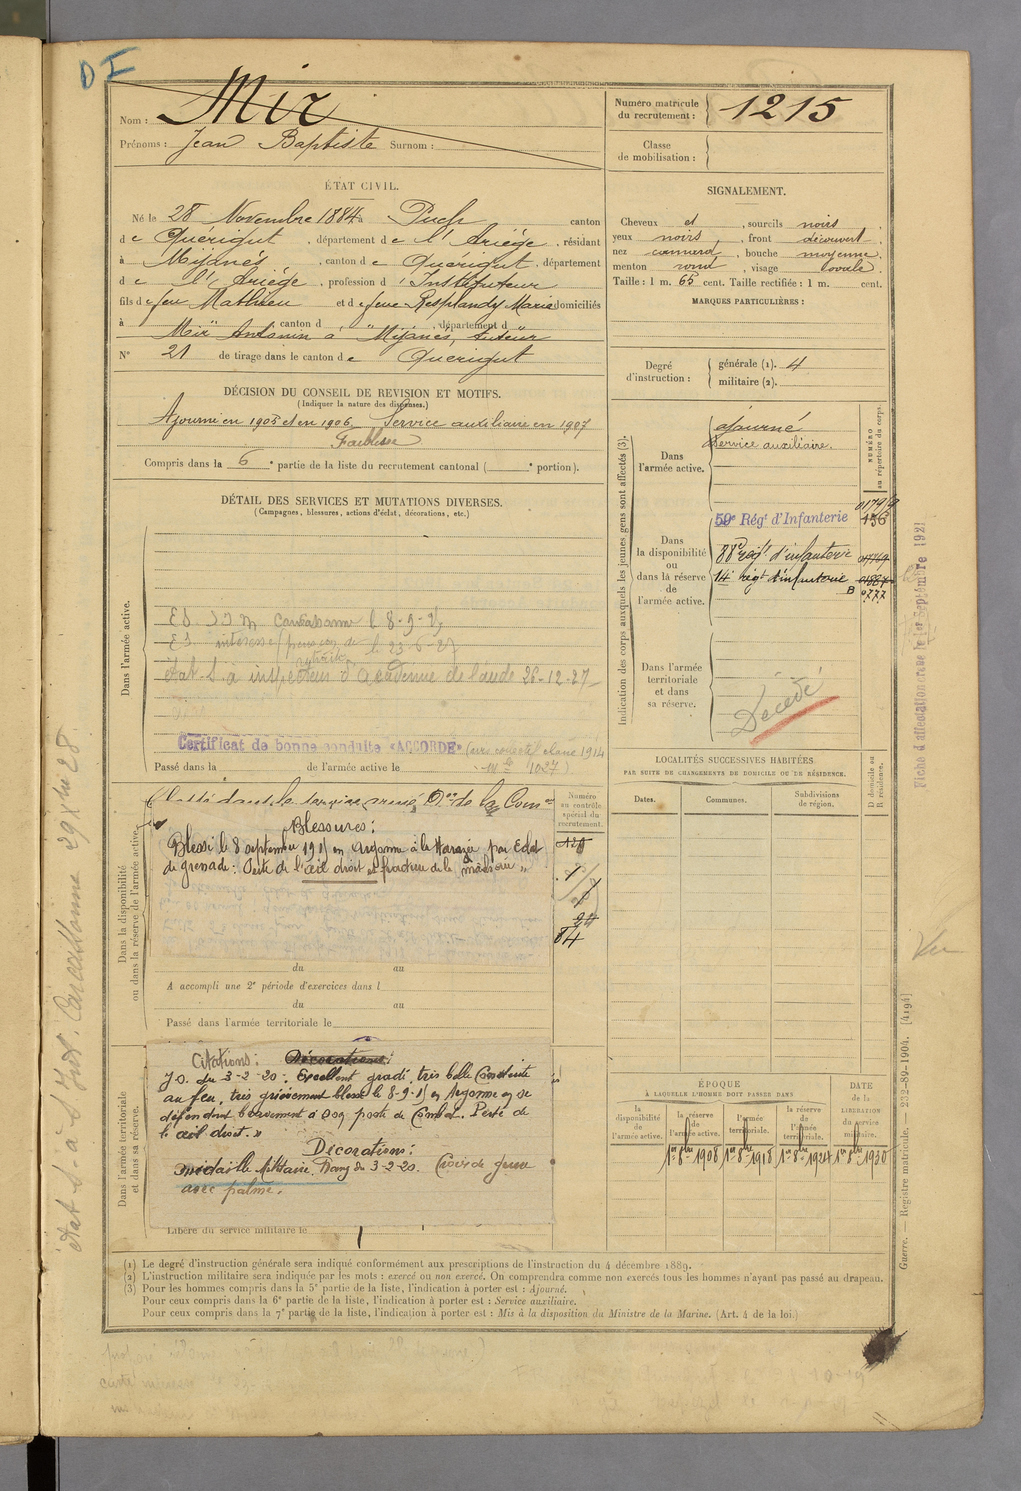 D I
Nom : Mir
Prénoms : Jean Baptiste Surnom :
Numéro matricule
du recrutement : 1215
Classe
de mobilisation :
ÉTAT CIVIL.
Né le 28 Novembre 1884 à Puch canton
de Quérigut, département de l'Ariége, résidant
à Mijanès, canton de Quérigut, département
de l'Ariége, profession d'Instituteur
fils de feu Mathieu et de feue Resplandy Marie domiciliés
à " canton d " , département d "
Mir Antonin à Mijanès, tuteur
N° 21 de tirage dans le canton de Quérigut
SIGNALEMENT.
Cheveux et , sourcils noirs
yeux noirs , front découvert
nez camard , bouche moyenne
menton rond , visage ovale
Taille : 1 m. 65 cent. Taille rectifiée : 1 m. cent.
MARQUES PARTICULIÈRES :
Degré
d'instruction :
générale (1). 4
militaire (2).
DÉCISION DU CONSEIL DE REVISION ET MOTIFS.
(Indiquer la nature des dispenses.)
Ajourné en 1905 et en 1906. Service auxiliaire en 1907
Faiblesse
Compris dans la 6e partie de la liste du recrutement cantonal ( e portion).
DÉTAIL DES SERVICES ET MUTATIONS DIVERSES.
(Campagnes, blessures, actions d'éclat, décorations, etc.)
Dans l'armée active.
Carcassonne le 8-9-
le 23-6-27
Etat S. à inspecteur d'académie de l'aude 26-12-27
Certificat de bonne conduite «ACCORDÉ» classe 1914
1027)
Passé dans la de l'armée active le
Indication des corps auxquels les jeunes gens sont affectés (3).
NUMÉRO
au répertoire du corps.
Dans
l'armée active.
ajourné
Service auxiliaire.
Dans
la disponibilité
ou
dans la réserve
de
l'armée active.
59e Régt d'Infanterie
156
88e régt d'infanterie
14e régt d'infanterie
B 0777
Dans l'armée
territoriale
et dans
sa réserve.
Décédé
Fiche d'affectation créée le 1er Septembre 1921
LOCALITÉS SUCCESSIVES HABITÉES
PAR SUITE DE CHANGEMENTS DE DOMICILE OU DE RÉSIDENCE.
D domicile ou
R résidence.
Dates.
Communes.
Subdivisions
de région.
Dans la disponibilité
ou dans la réserve de l'armée active.
Classé dans le service armé
Blessures :
Blessé le 8 septembre 1915 en Argonne à la Harazée par Eclat
de grenade : Perte de l'œil droit et fracture de la mâchoire "
Numéro
au contrôle
spécial du
recrutement.
84
du au
A accompli une 2e période d'exercices dans l
du au
Passé dans l'armée territoriale le
Dans l'armée territoriale
et dans sa réserve.
Citations : Décorations :
J.O. du 3-2-20 : Excellent gradé, très belle Conduite
au feu, très grièvement blessé le 8-9-15 en Argonne en se
défendant bravement à son poste de Combat. Perte de
l'œil droit. »
Décorations :
médaille Militaire. Rang du 3-2-20. Croix de guerre
avec palme.
Libéré du service militaire le
ÉPOQUE
À LAQUELLE L'HOMME DOIT PASSER DANS
DATE
de la
LIBÉRATION
du service
militaire.
la
disponibilité
de
l'armée active.
la réserve
de
l'armée active.
l'armée
territoriale.
la réserve
de
l'armée
territoriale.
1er 8bre 1908
1er 8bre 1918
1er 8bre 1924
1er 8bre 1930
Vu
Etat S. à Int. Carcassonne 29
Guerre. — Registre matricule. — 232-89-1904. [4194]
(1) Le degré d'instruction générale sera indiqué conformément aux prescriptions de l'instruction du 4 décembre 1889.
(2) L'instruction militaire sera indiquée par les mots : exercé ou non exercé. On comprendra comme non exercés tous les hommes n'ayant pas passé au drapeau.
(3) Pour les hommes compris dans la 5e partie de la liste, l'indication à porter est : Ajourné.
Pour ceux compris dans la 6e partie de la liste, l'indication à porter est : Service auxiliaire.
Pour ceux compris dans la 7e partie de la liste, l'indication à porter est : Mis à la disposition du Ministre de la Marine. (Art. 4 de la loi.)